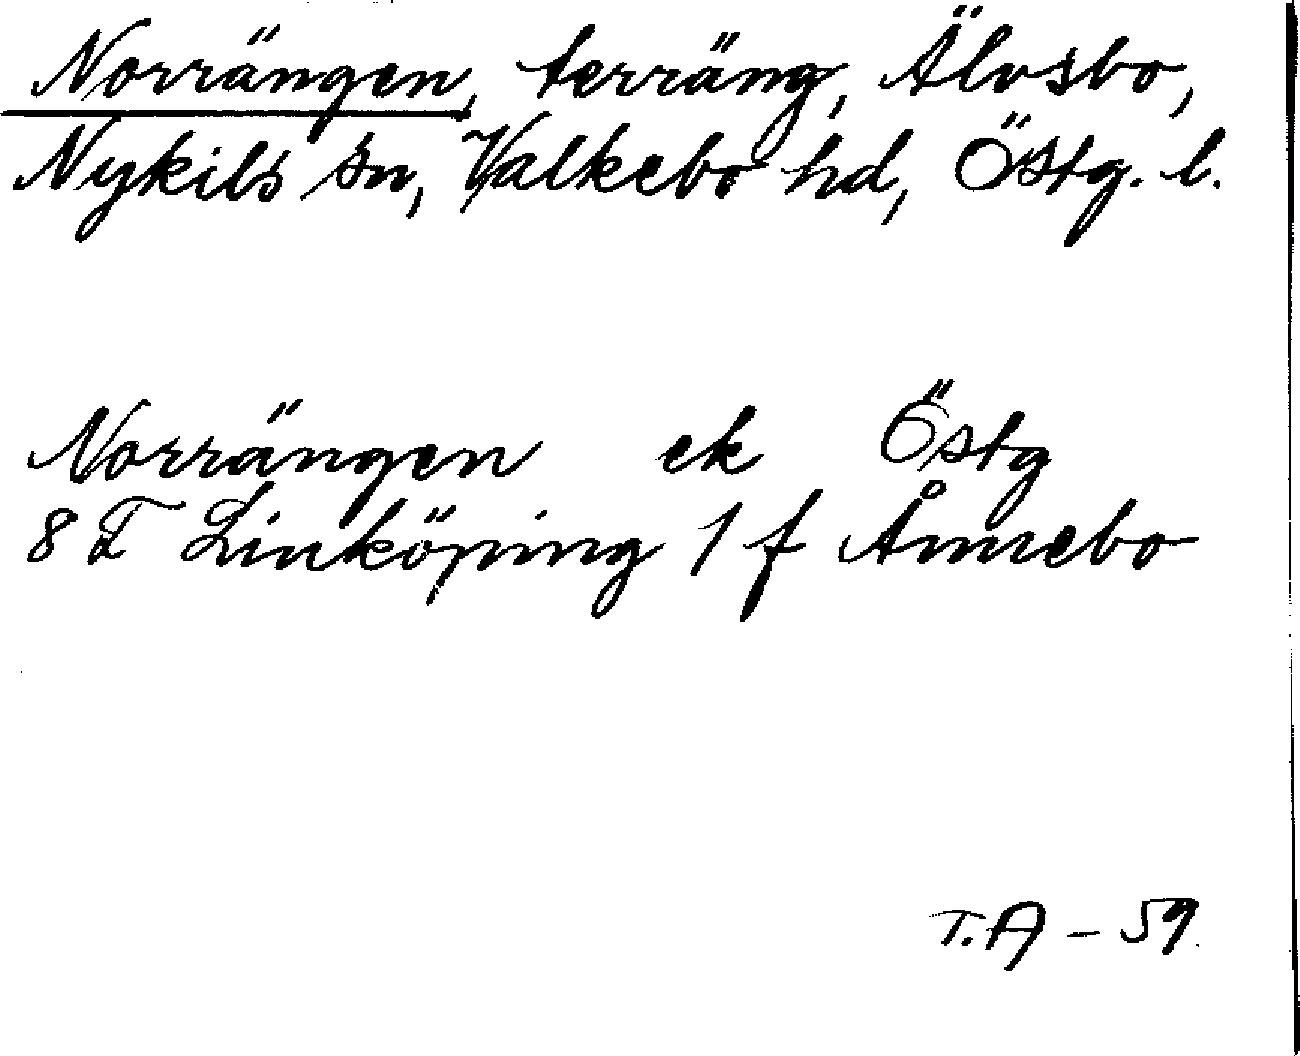 Norrängen, terräng, Älvsbo,
Nykils sn, Valkebo hd, Östg. l.
Norrängen ek Östg
8 F Linköping 1 f Ånnebo
T.A - 59